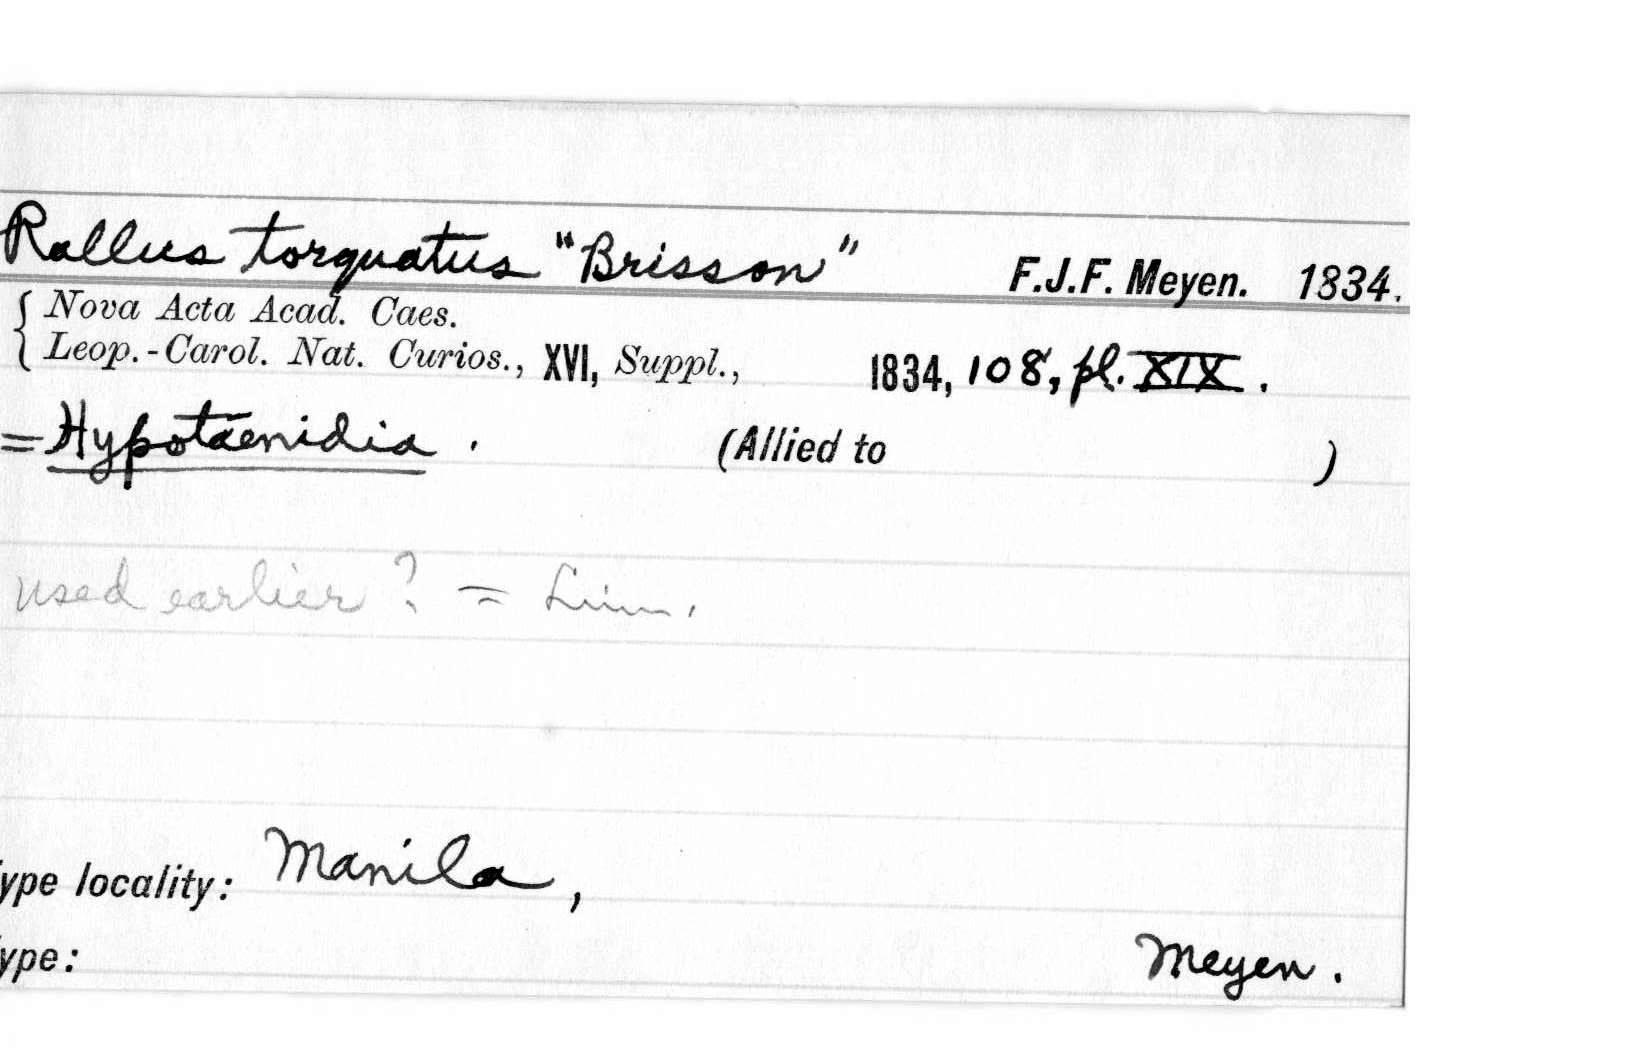 Rallus torquatus "Brisson" F.J.F. Meyen. 1834.
{ Nova Acta Acad. Caes.
Leop.-Carol. Nat. Curios., XVI, Suppl., 1834, 108, pl. XIX.
= Hypotaenidia . (Allied to )
used earlier? = Linn.
ype locality: Manila,
ype: Meyen.